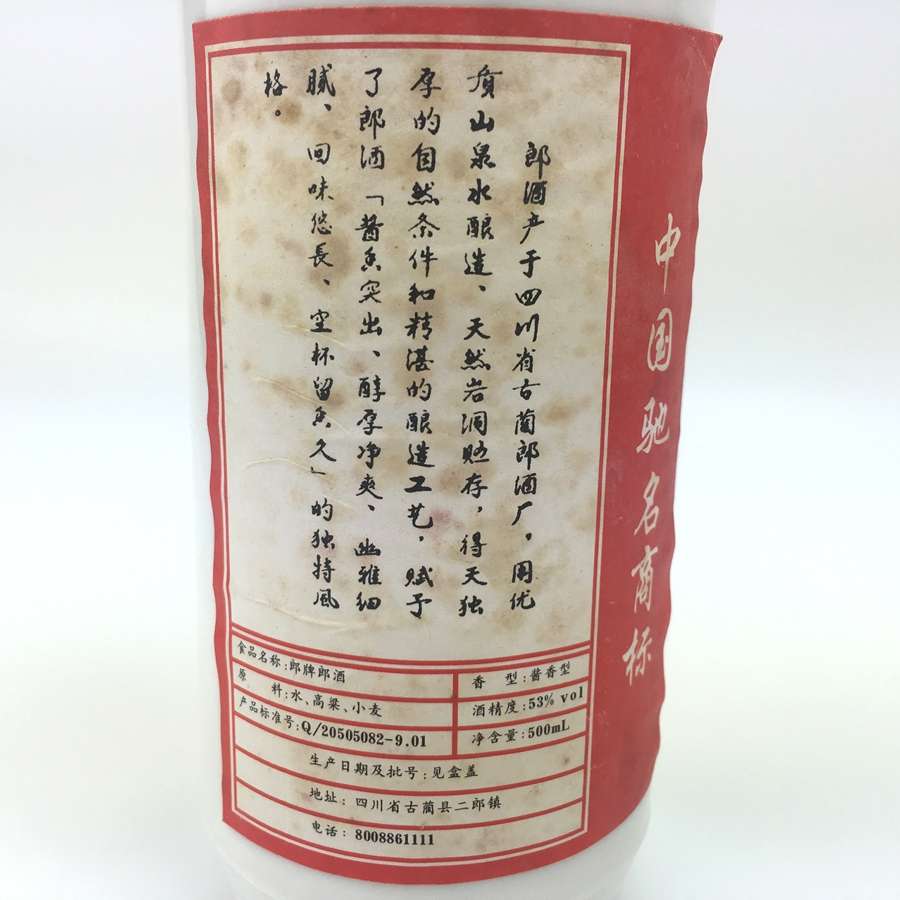 中国驰名商标
郎酒产于四川省古蔺郎酒厂，用优
质山泉水酿造、天然岩洞贮存，得天独
厚的自然条件和精湛的酿造工艺，赋予
了郎酒「酱香突出、醇厚净爽、幽雅细
腻、回味悠長、空杯留香久」的独特风
格。
食品名称:郎牌郎酒
香 型:酱香型
原 料:水、高粱、小麦
酒精度:53% vol
产品标准号:Q/20505082-9.01
净含量:500mL
生产日期及批号:见盒盖
地址: 四川省古蔺县二郎镇
电话: 8008861111